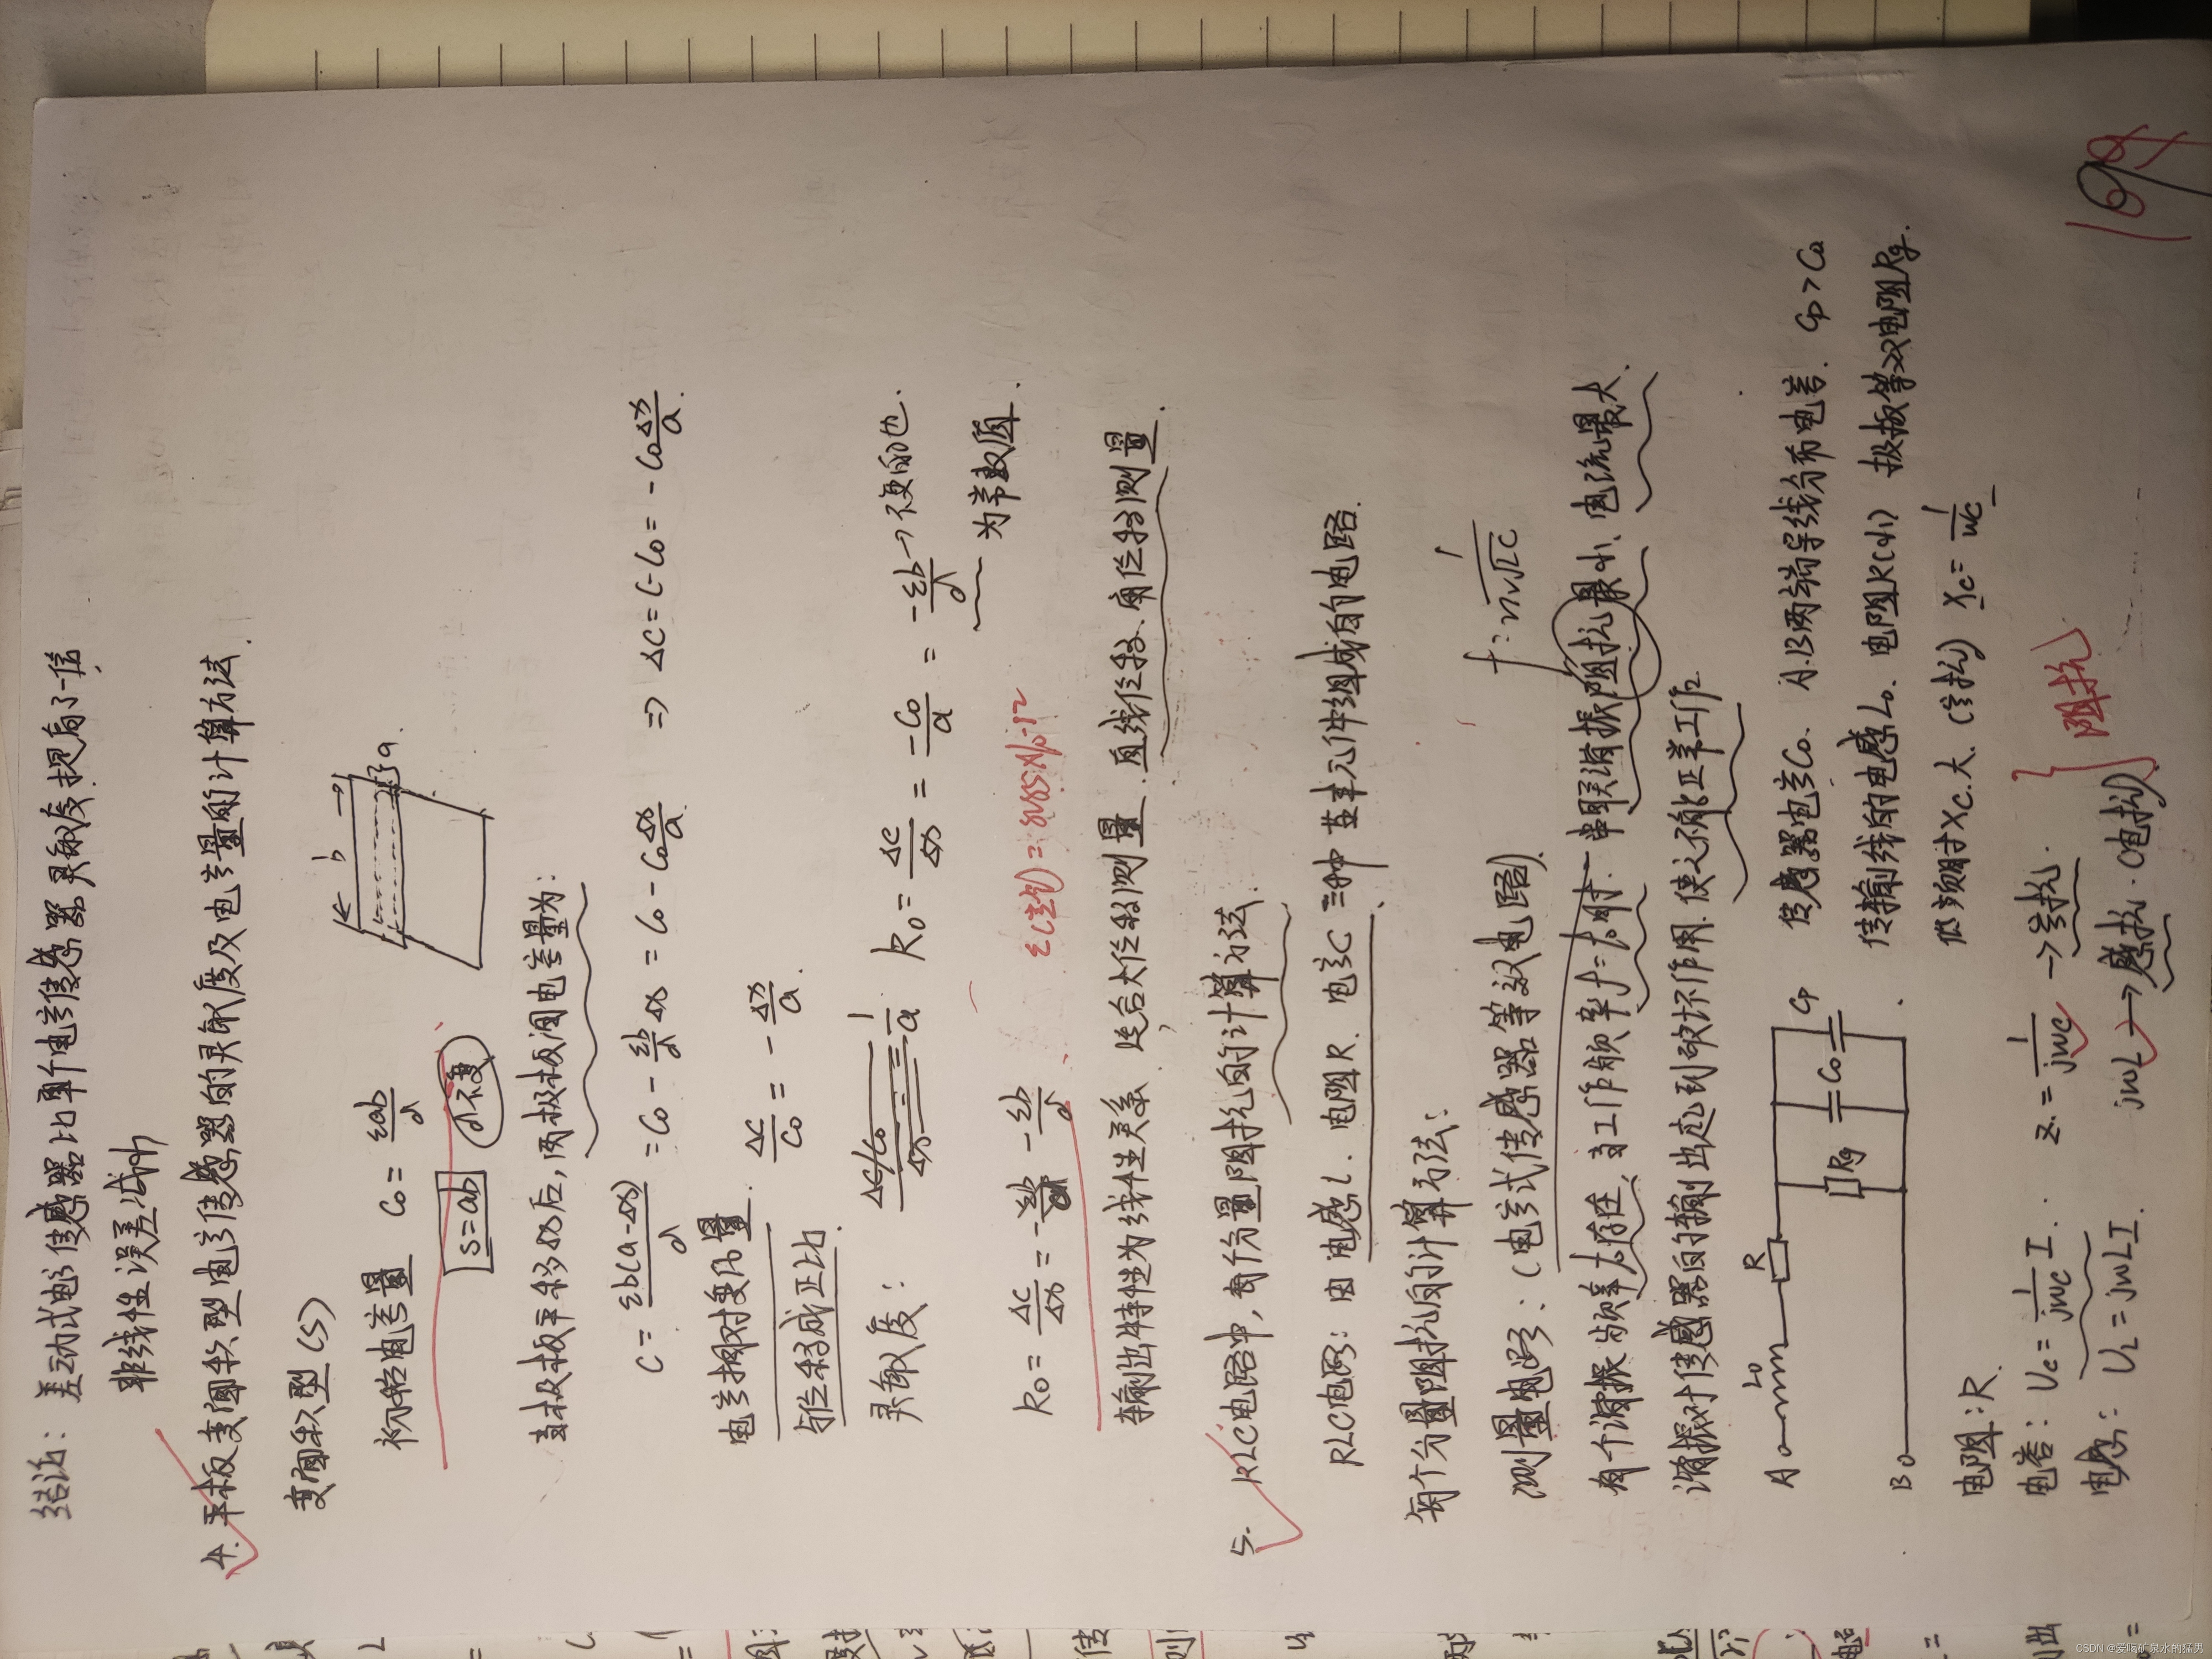 结论：差动式电容传感器比单个电容传感器灵敏度提高了一倍，
非线性误差减小
4. 平板变面积型电容传感器的灵敏度及电容量的计算方法.
变面积型(S)
初始电容量 C₀ = εab/d
b
a
S=ab
d不变
当极板平移Δx后，两极板间电容量为：
C = εb(a-Δx)/d = C₀ - εb/d Δx = C₀ - C₀Δx/a ⇒ ΔC = C-C₀ = -C₀Δx/a.
电容相对变化量 ΔC/C₀ = -Δx/a.
与位移成正比.
灵敏度： ΔC/C₀/Δx = 1/a K₀ = ΔC/Δx = -C₀/a = -εb/d → 不变的也.
为常数值.
K₀ = ΔC/Δx = -εb/d -εb/d
输出特性为线性关系，适合大位移测量. 直线位移、角位移测量.
5. RLC电路中，每个分量阻抗的计算方法.
RLC电路：由电感L. 电阻R. 电容C三种基本元件组成的电路.
每个分量阻抗的计算方法：
测量电路：(电容式传感器等效电路).
有个谐振频率f₀存在、当工作频率f=f₀时. 串联谐振阻抗最小、电流最大.
谐振对传感器的输出起到破坏作用. 使之不能正常工作.
A L₀ R
Rg C₀ Cp
B
传感器电容C₀. A.B两端导线分布电容. Cp > C₀
传输线的电感L₀. 电阻R(小) 极板等效电阻Rg.
低频时Xc.大. (容抗) Xc = 1/ωc
电阻：R.
电容：Uc = 1/jωc I. Z. = 1/jωc → 容抗.
电感：UL = jωLI. jωL → 感抗.(电抗)
阻抗
CSDN @爱喝矿泉水的猛男